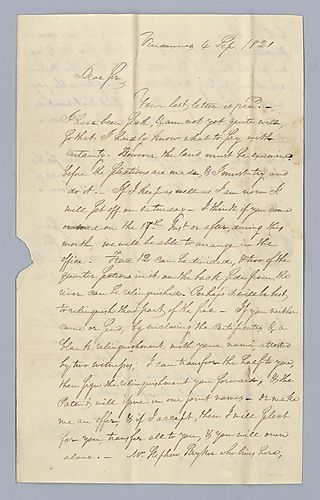 Vincennes 4 Sep. 1821
Dear Sir,
Your last letter is recd. —
I have been sick & am not yet quite well,
so that I hardly know what to say with
certainty. However the land must be examined
before the selections are made & I must try and
do it. — If I keep as well as I am now I
will set off on Saturday — I think if you come
on the 17th Inst or after during this
month we will be able to arrange in the
office. — Frac 12 can be divided, & two of the
quarter sections in it on the back side from the
river can be relinquished. Perhaps it will be best
to relinquish that part of the frac — If you neither
come or send, by enclosing the certificates & a
blank relinquishment with your name attested
by two witness, I can transfer the half to you,
then sign the relinquishment you forward, & the
Patent will issue in our joint names — or make
me an offer, & if I accept, then I will select
for you, transfer all to you, & you will own
alone. — Mr Stephen who lives here,